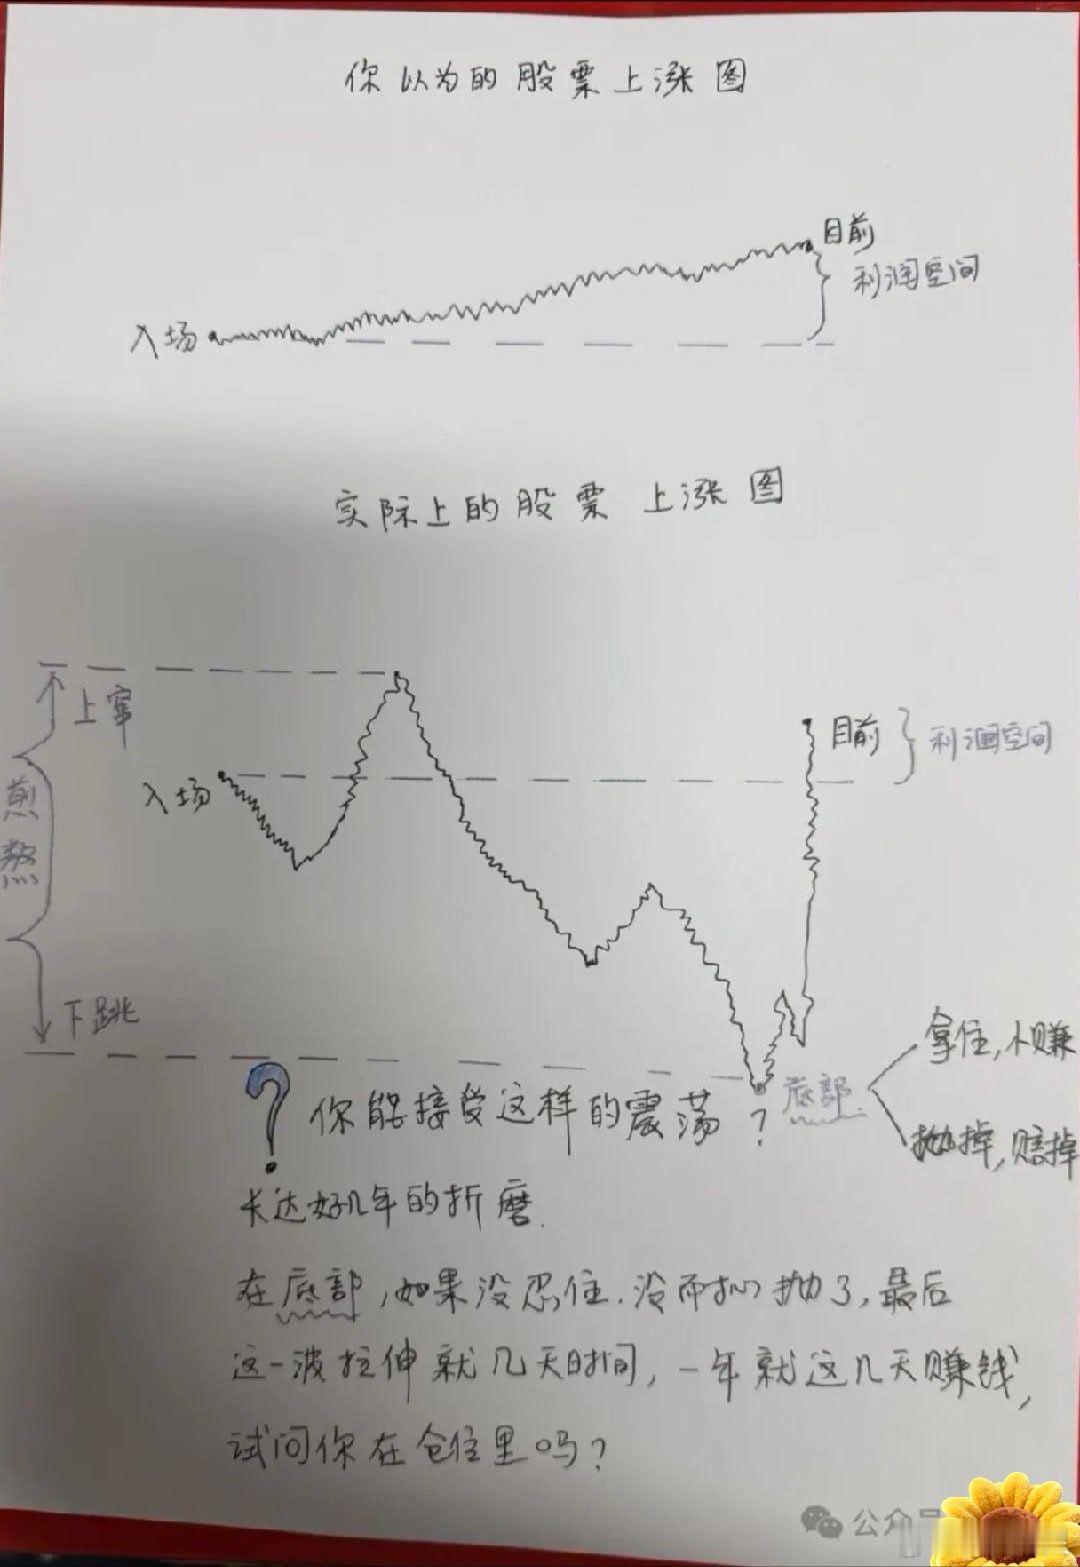 你以为的股票上涨图
目前
利润空间
入场
实际上的股票上涨图
上窜
目前
利润空间
入场
煎熬
下跳
拿住,小赚
底部
抛掉,赔掉
? 你能接受这样的震荡?
长达好几年的折磨.
在底部,如果没忍住.没耐心抛了,最后
这一波拉伸就几天时间,一年就这几天赚钱,
试问你在仓位里吗?
公众号